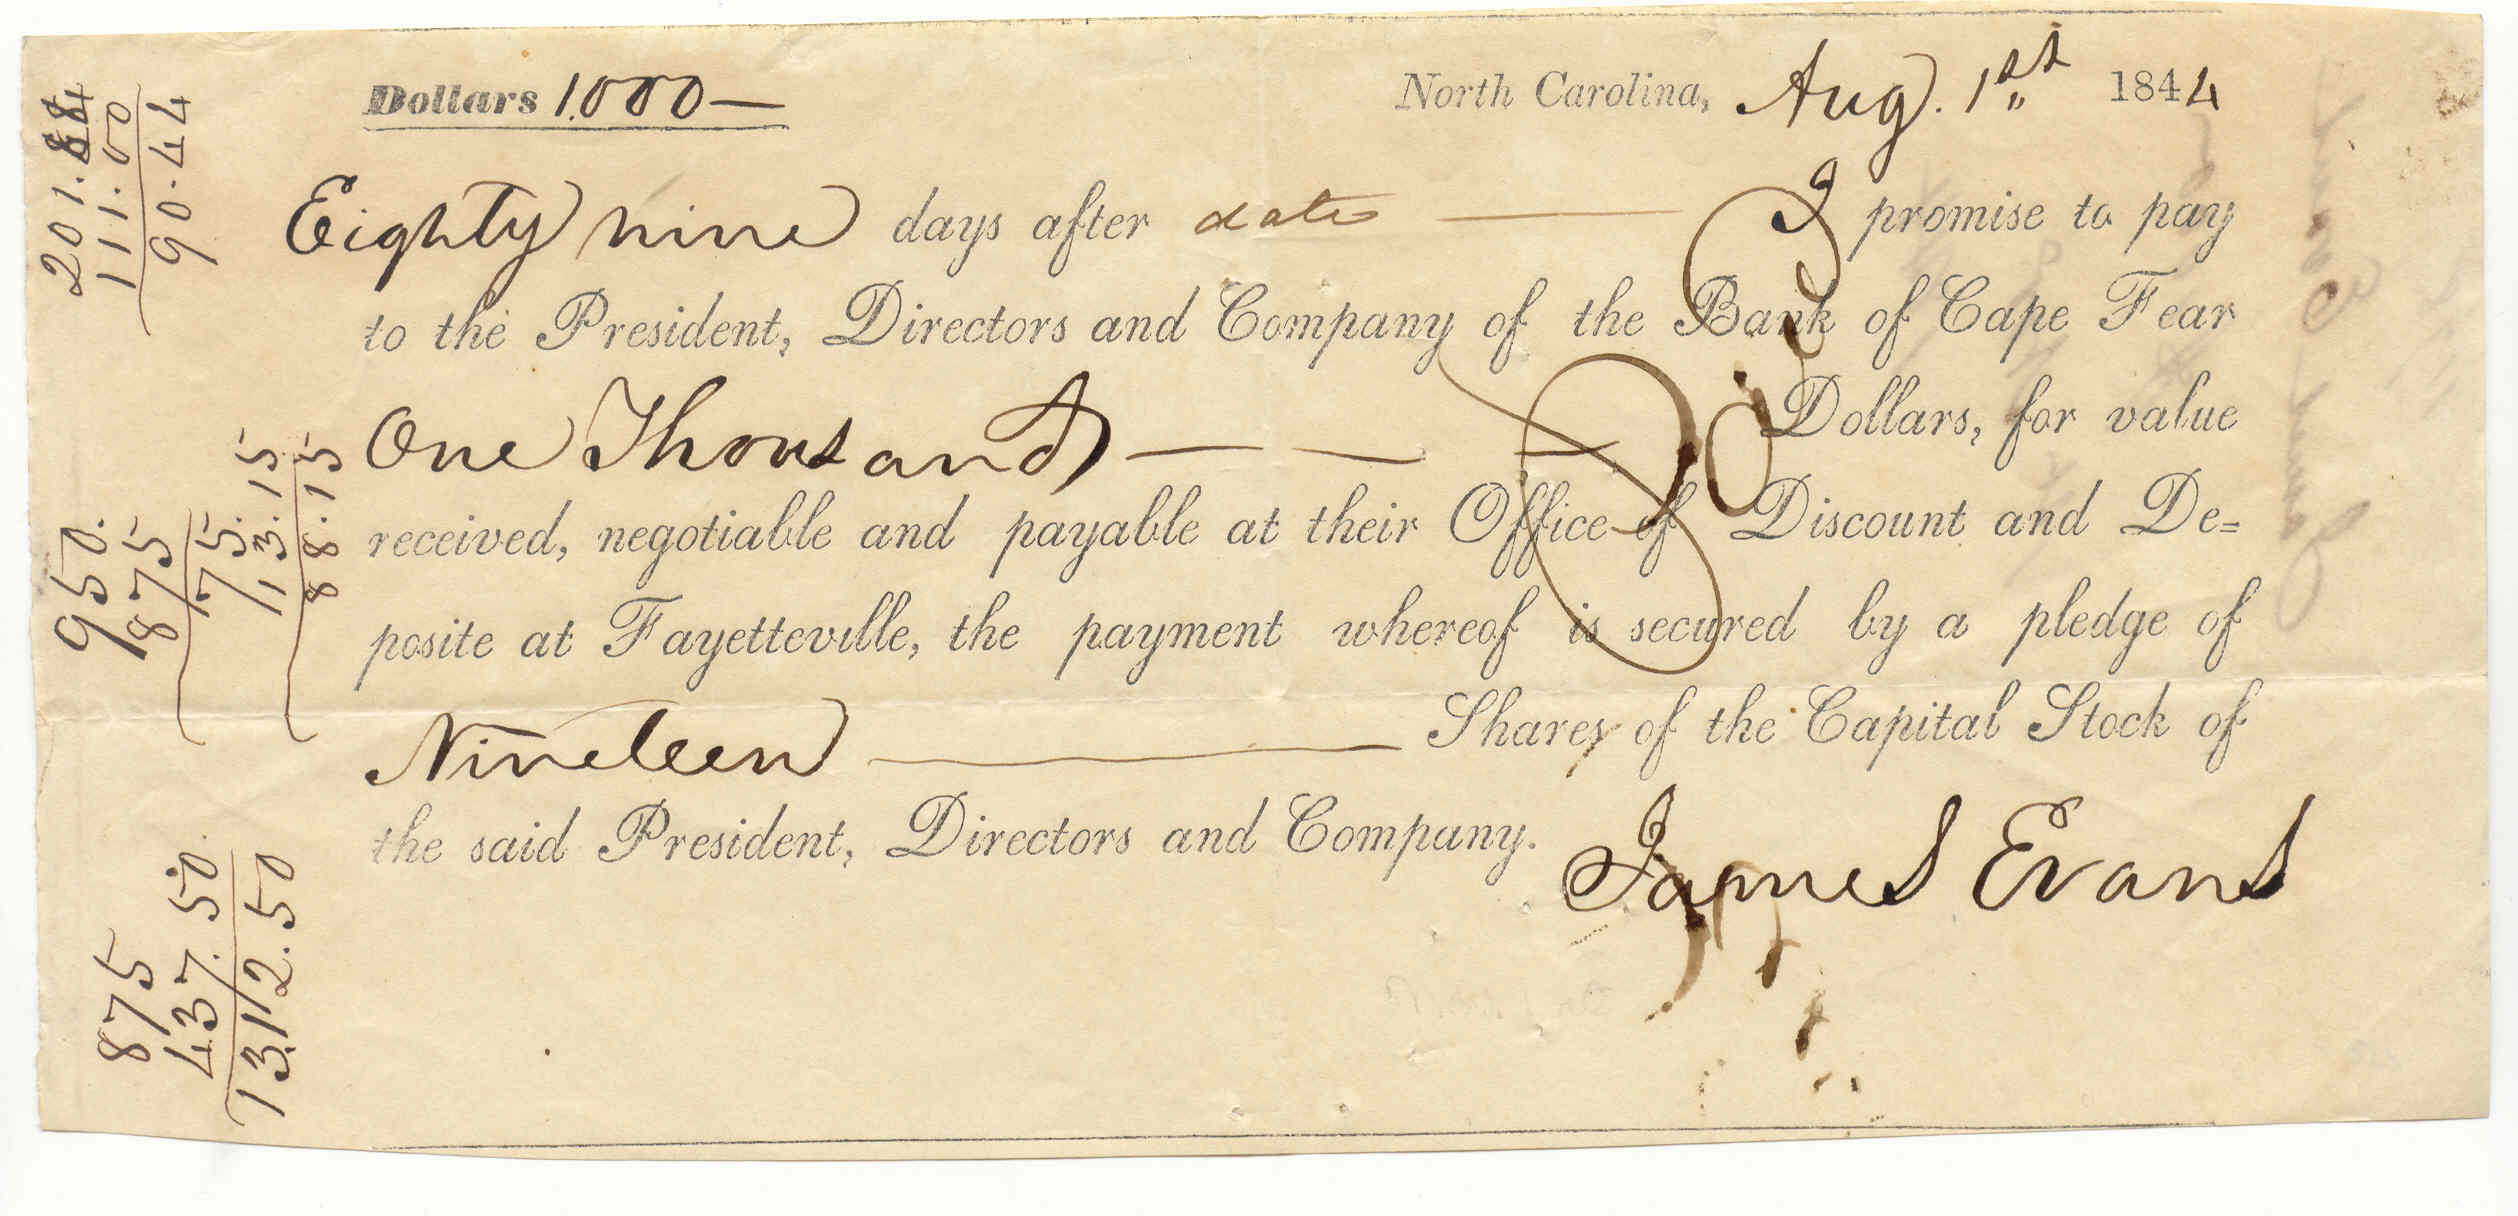 Dollars 1.000— North Carolina, Aug. 1st 1844
Eighty nine days after date — I promise to pay
to the President, Directors and Company of the Bank of Cape Fear
One Thousand — — — Dollars, for value
received, negotiable and payable at their Office of Discount and De=
posite at Fayetteville, the payment whereof is secured by a pledge of
Nineteen — Shares of the Capital Stock of
the said President, Directors and Company.
James Evans
Paid
111.00
90.44
950.
875
75.
13.15
88.15
875
437.50
1312.50